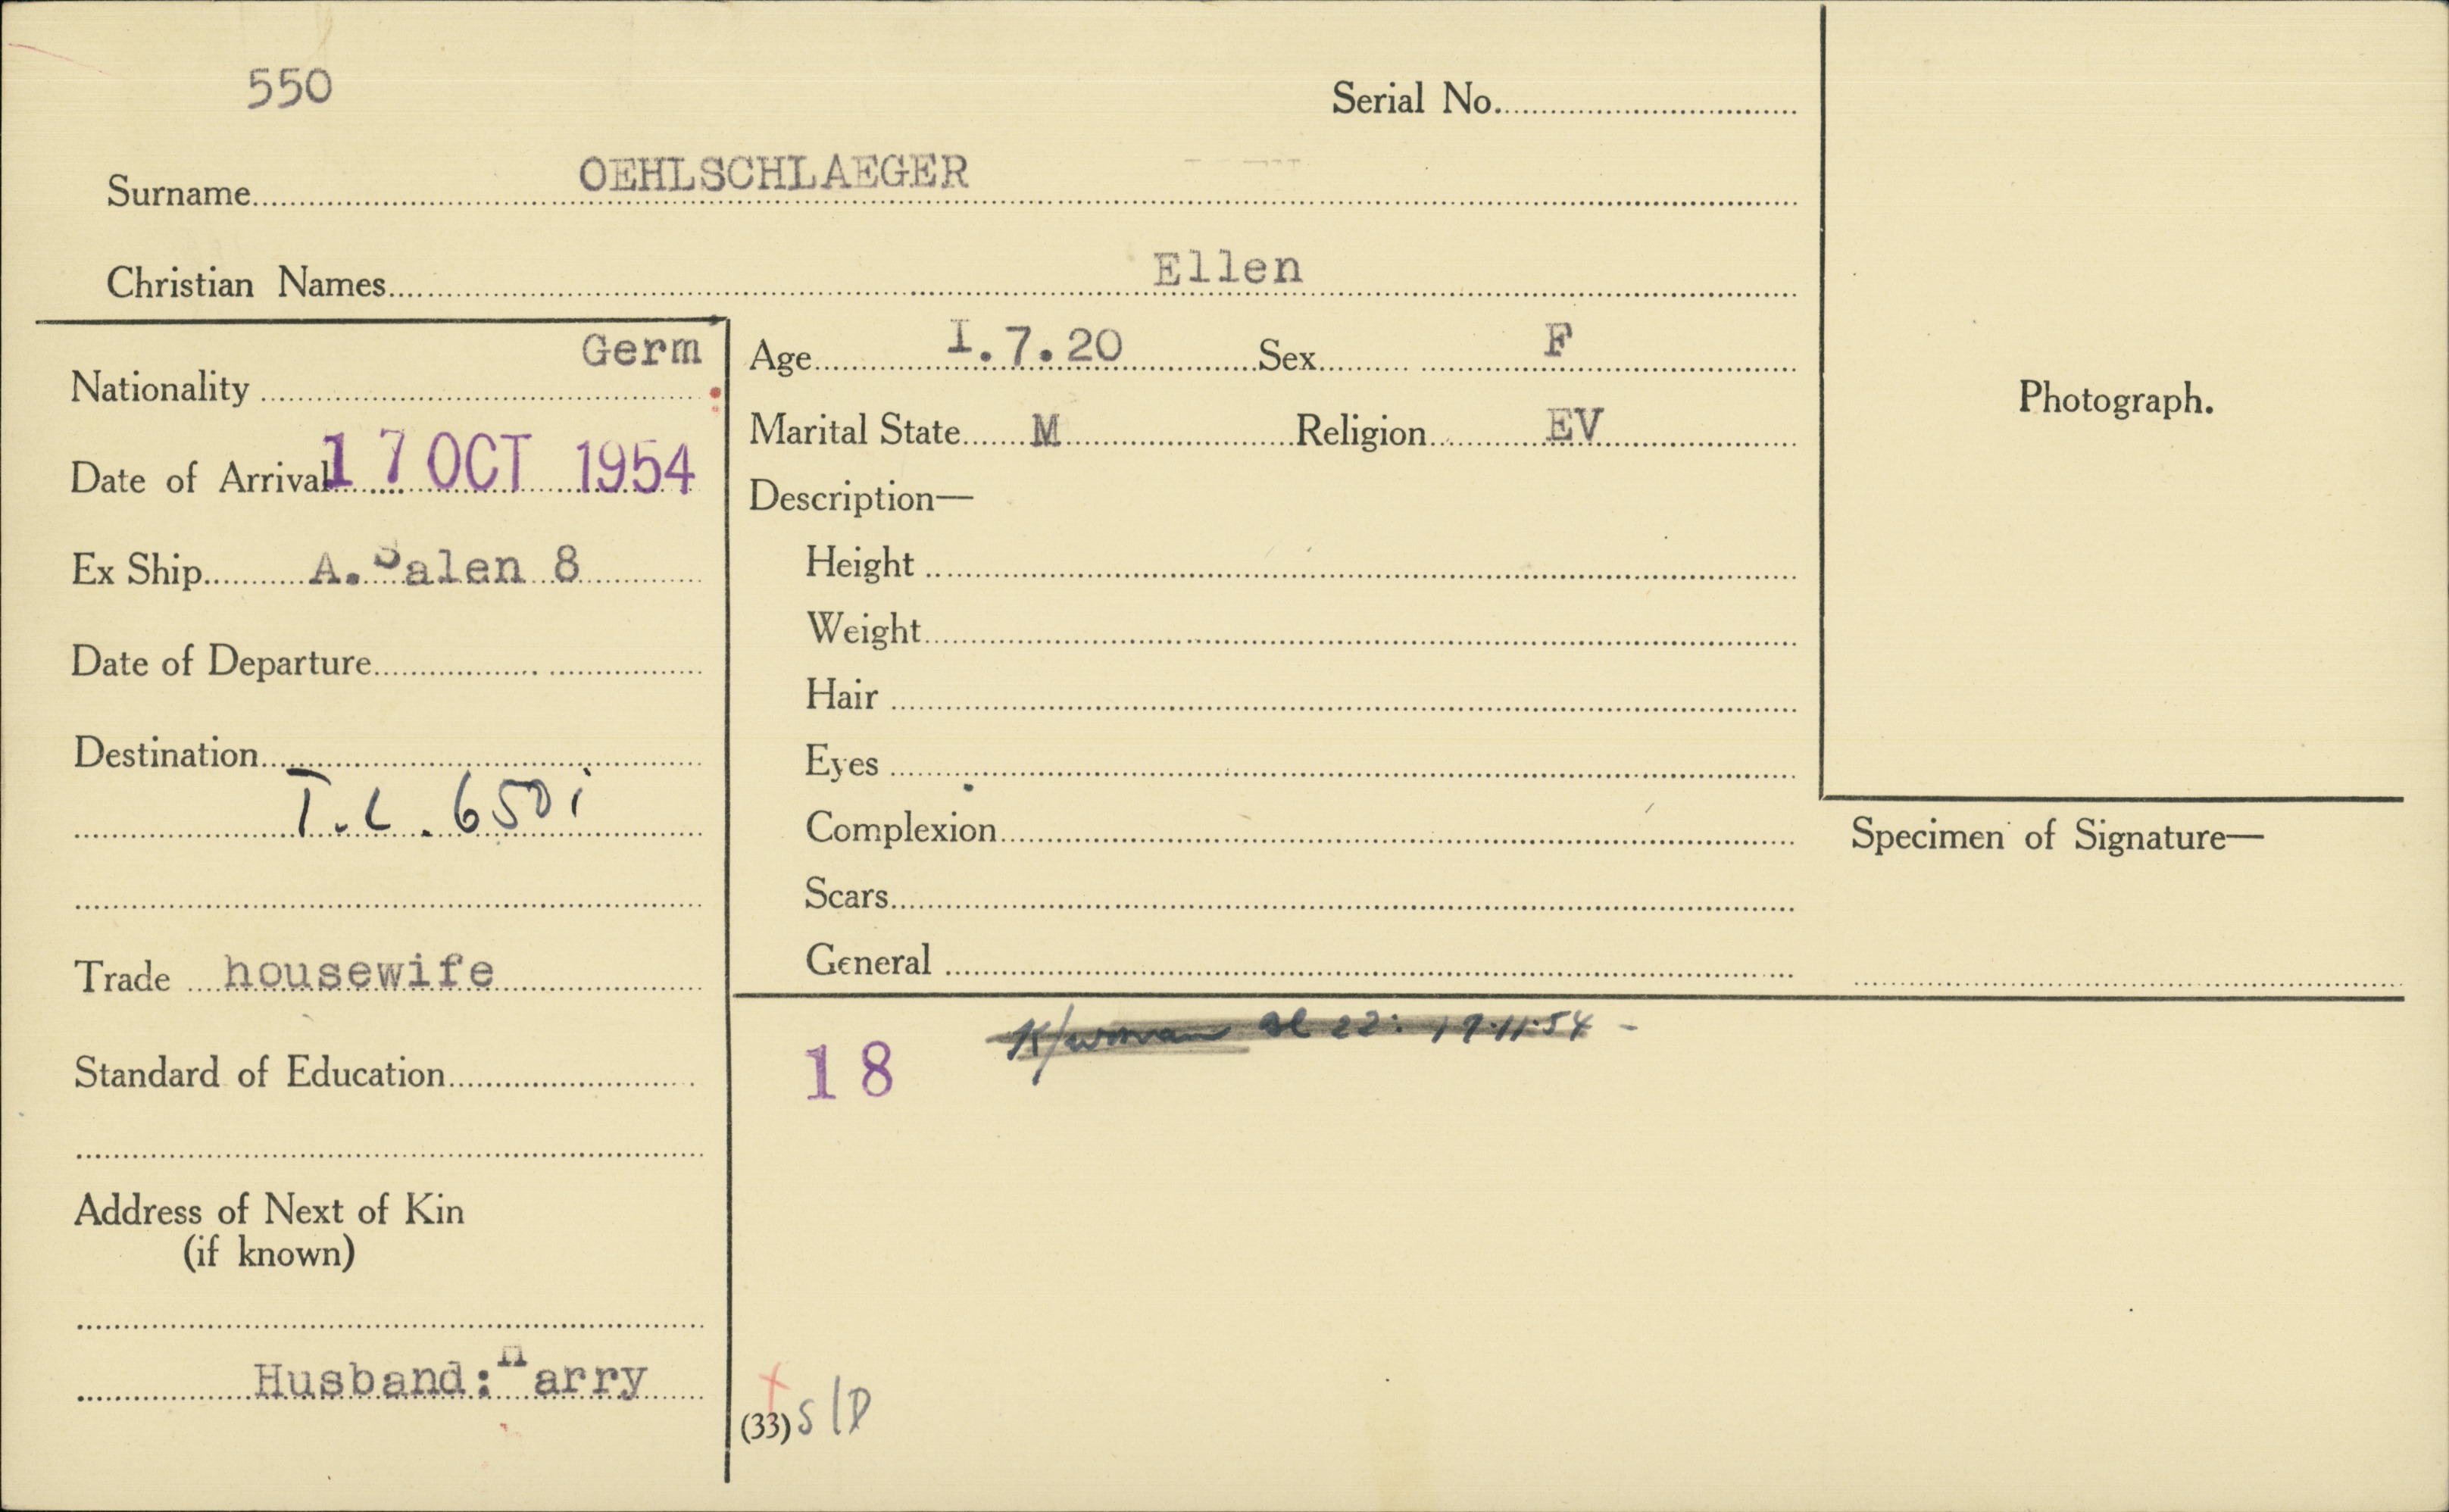 550
Serial No.
Surname OEHLSCHLAEGER
Christian Names Ellen
Nationality Germ
Date of Arrival 17 OCT 1954
Ex Ship A. Salen 8
Date of Departure
Destination
T.L. 650i
Trade housewife
Standard of Education
Address of Next of Kin
(if known)
Husband: Harry
Age I.7.20 Sex F
Marital State M Religion EV
Description—
Height
Weight
Hair
Eyes
Complexion
Scars
General
Photograph.
Specimen of Signature—
K/woman 22: 17.11.54 -
18
(33) S/D